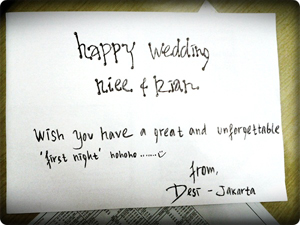 happy wedding
niee & kian
Wish you have a great and unforgettable
'first night' hohoho .......
from,
Desi - Jakarta